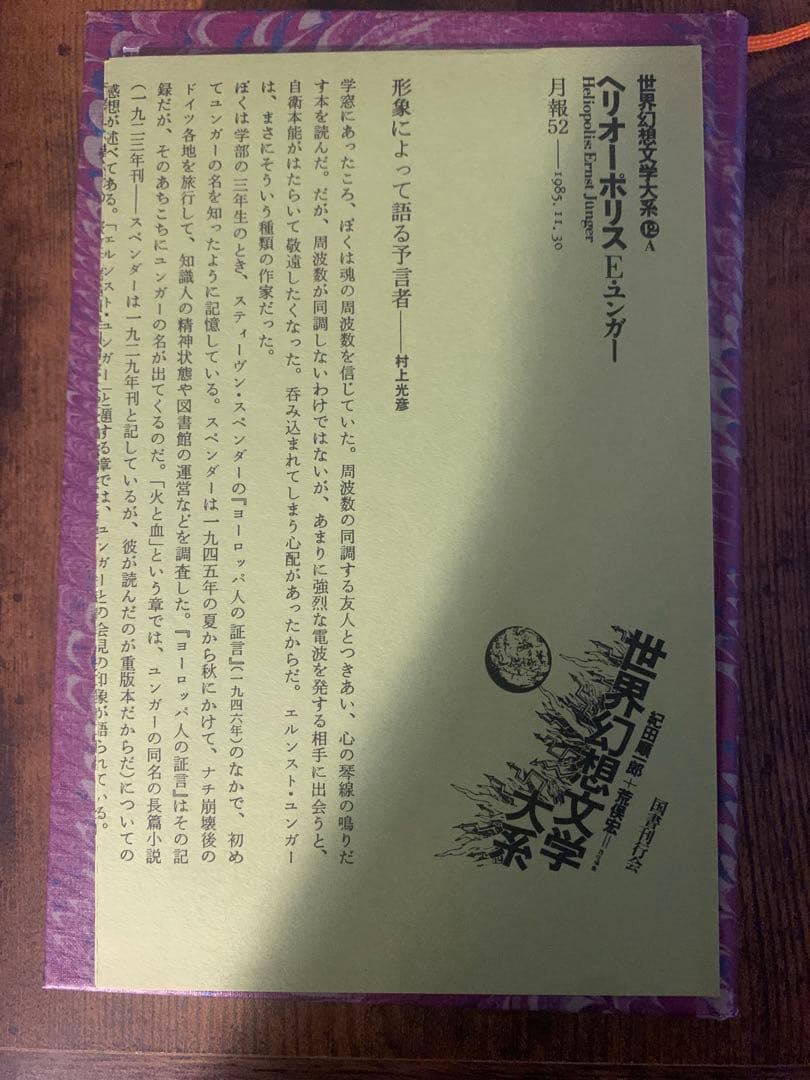 世界幻想文学大系 42 A
ヘリオーポリス E・ユンガー
Heliopolis: Ernst Junger
月報52 ── 1985. 11. 30
世界幻想文学大系
紀田順一郎＋荒俣宏＝
国書刊行会
形象によって語る予言者──村上光彦
学窓にあったころ、ぼくは魂の周波数を信じていた。周波数の同調する友人とつきあい、心の琴線の鳴りだ
す本を読んだ。だが、周波数が同調しないわけではないが、あまりに強烈な電波を発する相手に出会うと、
自衛本能がはたらいて敬遠したくなった。呑み込まれてしまう心配があったからだ。エルンスト・ユンガー
は、まさにそういう種類の作家だった。
ぼくは学部の三年生のとき、スティーヴン・スペンダーの『ヨーロッパ人の証言』（一九四六年）のなかで、初め
てユンガーの名を知ったように記憶している。スペンダーは一九四五年の夏から秋にかけて、ナチ崩壊後の
ドイツ各地を旅行して、知識人の精神状態や図書館の運営などを調査した。『ヨーロッパ人の証言』はその記
録だが、そのあちこちにユンガーの名が出てくるのだ。「火と血」という章では、ユンガーの同名の長篇小説
（一九二三年刊──スペンダーは一九二九年刊と記しているが、彼が読んだのが重版本だからだ）についての
感想が述べてある。「エルンスト・ユンガー」と題する章では、ユンガーとの会見の印象が語られている。